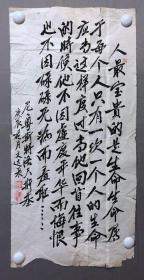 人最宝贵的是生命生命属
于每个人只有一次一个人的生命
应当这样度过当他回首往事
的时候他不因虚度年华而悔恨
也不因碌碌无病而羞耻……
尼·奥斯特洛夫斯基